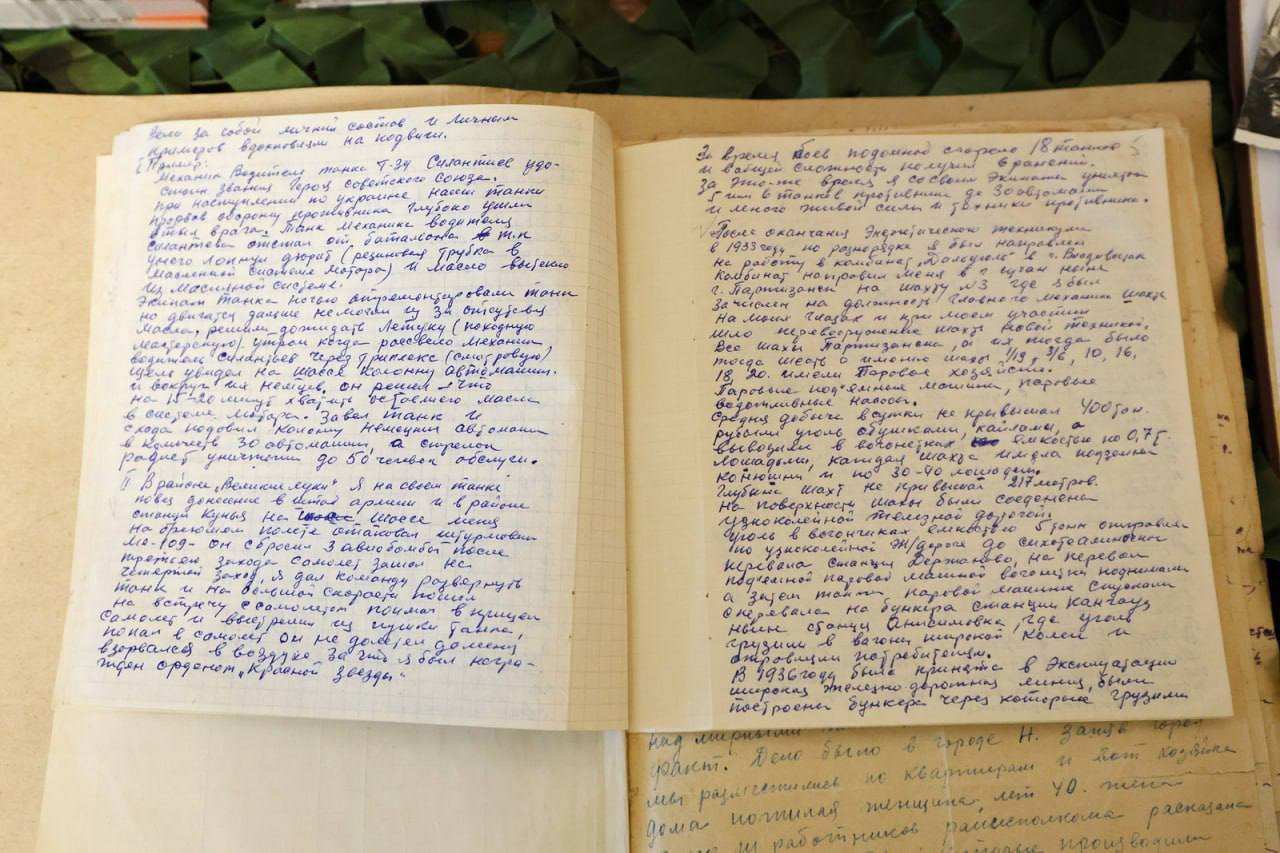 вели за собой личный состав и личным
примером вдохновляли на подвиги.
I Пример:
Механик Водитель танка Т-34 Силантиев удо-
стоин звания Герой Советского Союза.
при наступлении по украине наши танки
прорвав оборону противника глубоко ушли
в тыл врага. Танк Механика водителя
Силантьева отстал от батальона т.к
у него лопнул дюрит (резиновая трубка в
масленной системе мотора) и масло вытекло
из масляной системе.
Экипаж танка ночью отремонтировали танк
но двигатся дальше немогли из за отсутсвия
масла, решили дожидать Летучку (походную
мастерскую) утром когда рассвело механик
водитель Силантьев через триплекс (смотровую)
щель увидел на шоссе колонну автомашин.
и вокруг их немцев, он решил что
на 15-20 минут хватит оставшего масла
в системе мотора. Завел танк и
схода подовил колонну немецких автомашин
в количестве 30 автомашин, а стрелок
радист уничтожил до 50 человек обслуги.
II В районе „Великие луки" я на своем танке
повез донесение в штаб армии и в районе
станции Кунья на шоссе меня
на бреющем полете атаковал штурмовик
Ме-109- он сбросил 3 авиобомбы после
третьего захода самолет зашол на
четвертой заход, я дал команду развернуть
танк и на большой скорости пошел
на встречу с самолетом поймал в прицел
самолет и выстрелил из пушки танка,
попал в самолет он не долетел до меня
взорвался в воздухе. За что я был награ-
жден орденом „Красной Звезды"
За время боев подомной сгорело 18 танков 5
и вобщей сложности получил 8 ранений.
За это-же время я со своим Экипажем уничтожил
5 танков противника до 30 автомашин
и много живой силы и техники противника.
После окончания Техникума
в 1933 году по разнорядке я был направлен
на работу в комбинат „Дальуголь" в г. Владивосток
Комбинат направил меня в г. Сучан ныне
г. Партизанск на шахту №3 где я был
зачислен на должность Главного механика шахты
На моих глазах и при моем участии
шло перевооружение шахты новой техникой.
Все шахты Партизанска, а их тогда было
тогда шесть а именно шахты 1/19, 3/6, 10, 16,
18, 20. имели Паровое хозяйство.
Паровые под'емные машины, паровые
водоотливные насосы.
Средняя добыча в сутки не превышал 400 тон.
рубили уголь обушками, кайлами, а
вывозили в вагонетках емкостью по 0,7 т.
лошадьми, каждая шахта имела подземные
конюшни и по 30-40 лошадей.
Глубина шахт не превышал 217 метров.
На поверхности шахты были соеденена
узкоколейной железной дорогой.
Уголь в вагончиках емкостью 5 тонн отправляли
по узкоколейной Ж/дороге до сихотеалинского
перевала станции на перевал
подъемной паровой машиной вагонетки поднимали
а затем такой паровой машиной спускали
с перевала на бункера станции Кангауз
ныне станция Анисимовка, где уголь
грузили в вагоны широкой колеи и
отправляли потребителям.
В 1936 году была принята в Эксплуатации
широкая железно дорожная линия, были
построены бункера через которые грузили
над мирными
факт. Дело было в городе Н.
мы разместились по квартирам и вот хозяйка
дома пожилая женщина, лет 40. жена
работников райисполкома рассказала
производили